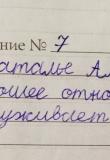 ние № 7
аталье Ал
ошее отно
уживает